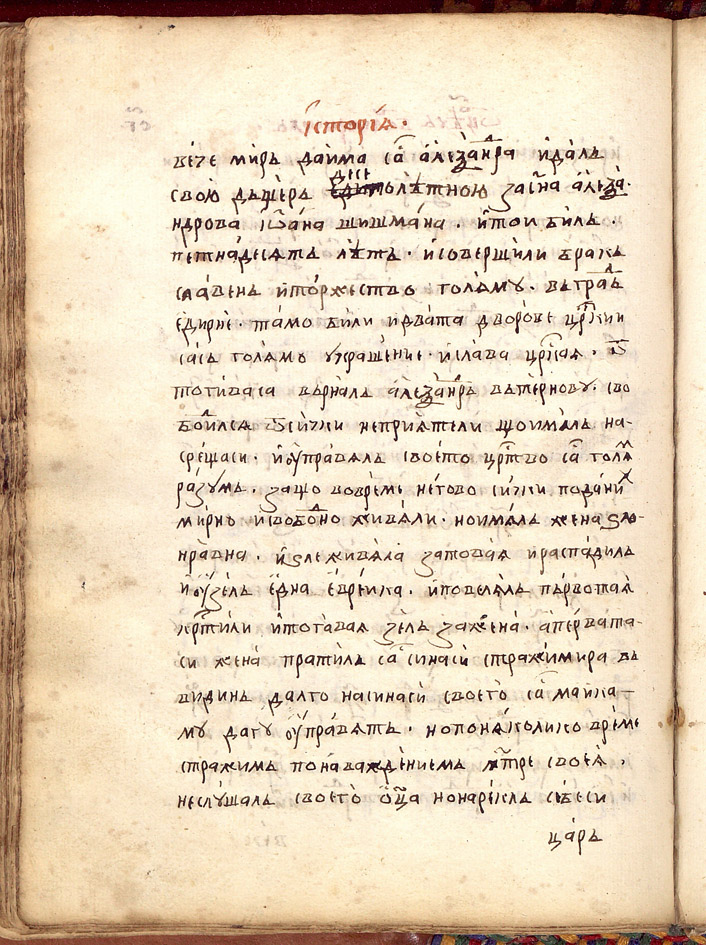 їсторїѧ ·
вече мирь даима са алеѯандра идаль
свою дъщерь десетолѣтною за сина алеѯа·
ндрова їѡана шишмана · и той биль ·
петнадесять лѣть · и совершили бракь
славень и торжество голѣмо · вь градь
едирне · тамо били и двата дворове цр҃кии
сась голѣмо украшение · и слава цр҃кая · ѿ
тогиваса вьрналь алеѯандрь вь терновꙋ · сво
бодилсѧ ѿ сички неприѧтели що ималь на-
срещаси · и ꙋправѧль своего цр҃тво са голѧм
разумь · защо во време негово сички подани
мирно и свободно живѧли · но ималь жена ѕло-
нравна · и ѕле живѧла затоваѧ и распꙋдиль
и ꙋзель една евреика · и повелѧль първо таѧ
кр҃тили и тогаваѧ зель за жена · а первата-
си жена пратиль са синаси страхимира вь
видинь далго на синаси своего са маика-
мꙋ да гꙋ ꙋправѧть · но по нѧколико време
страхимь по наваждениемь мт҃ре своеѧ ,
не слꙋшаль своего ѿца но нарекль себеси
царь